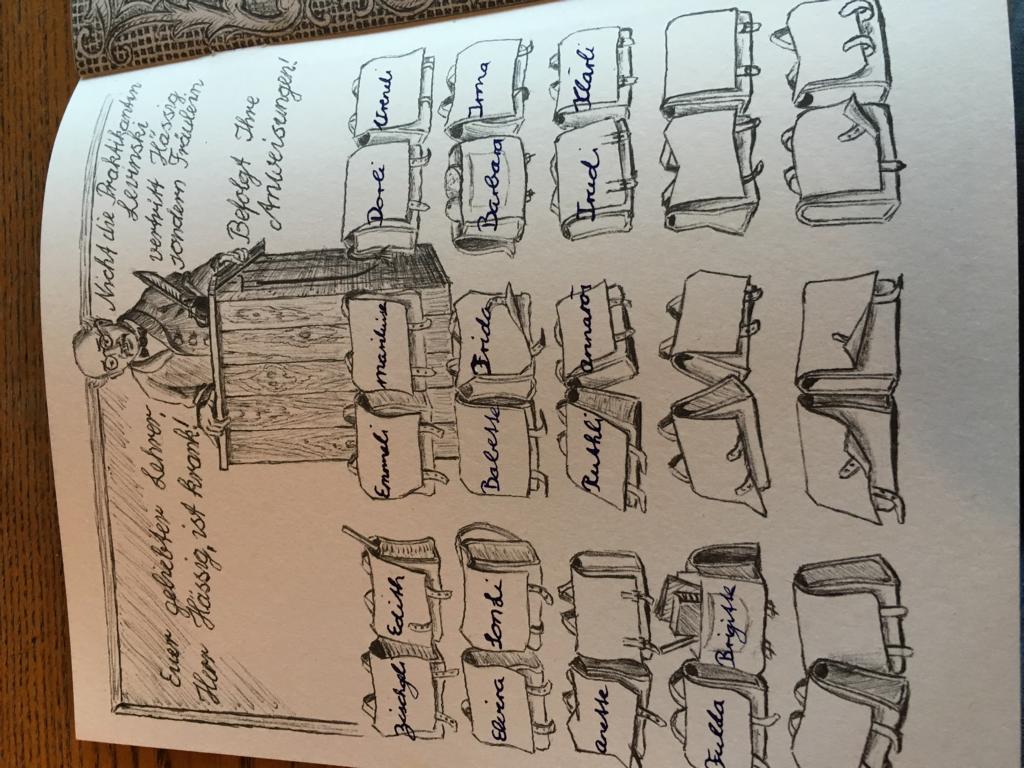 Euer geliebter Lehrer,
Herr Hässig, ist krank!
Nicht die Praktikantin
Levinski
vertritt Hässig
sondern Fräulein
Befolgt Ihre
Anweisungen!
Edith Emmeli Marieluise Dorli
Elvira Sondi Babette Frida Barbara Irma
Ruthli Annarös Trudi Klärli
Fulda Brigitte